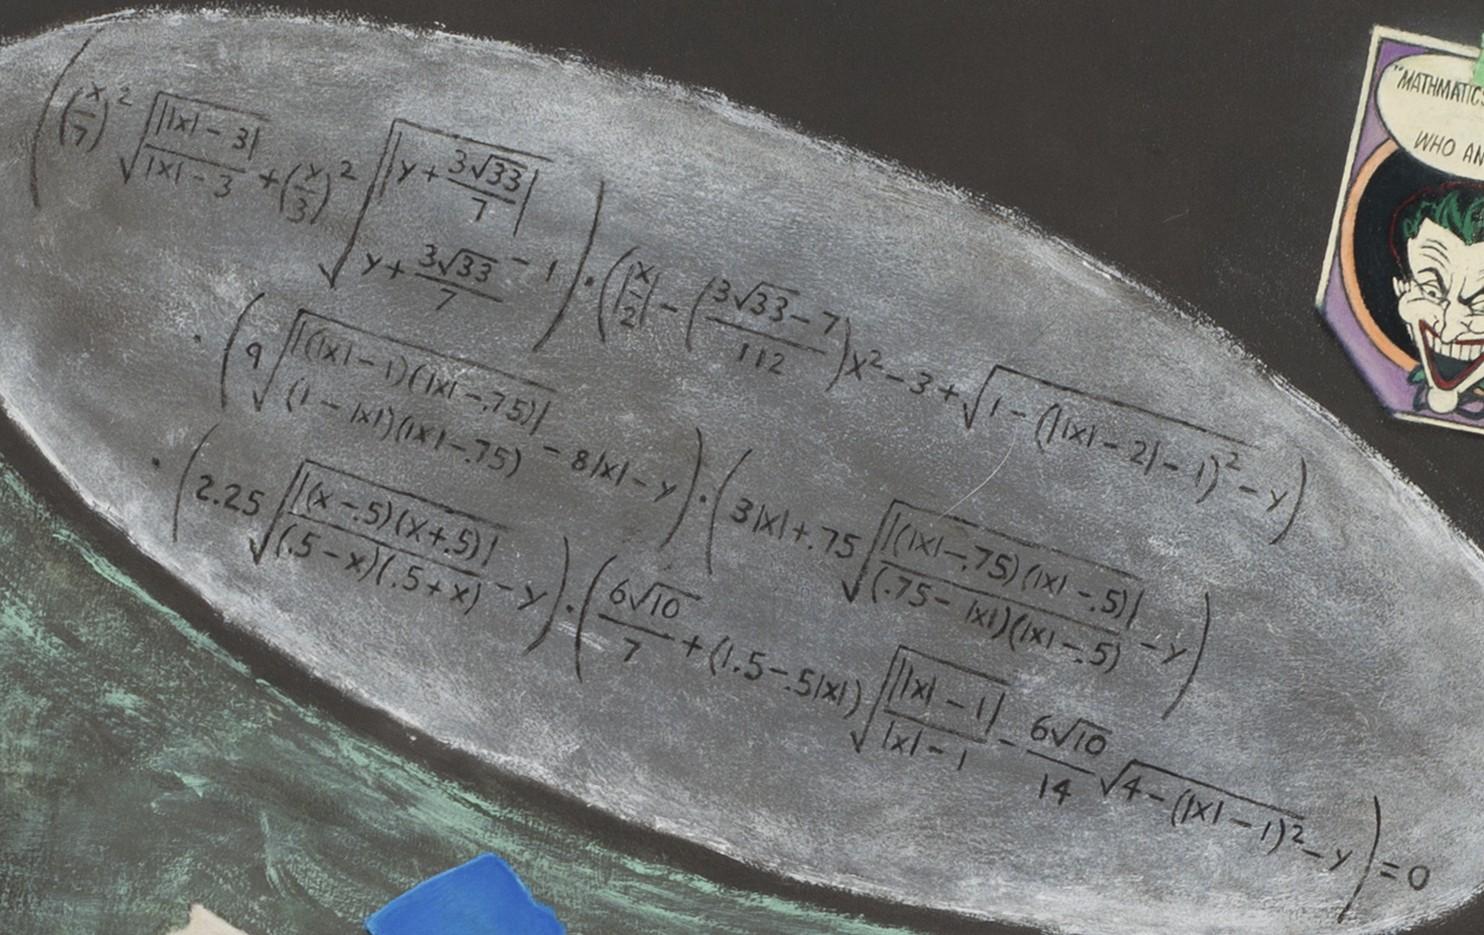 ((x/7)² √(||x| - 3|/(|x| - 3)) + (x/3)² √(|y + 3√33/7|/(y + 3√33/7)) - 1) · (|x/2| - ((3√33 - 7)/112)x² - 3 + √(1 - (||x| - 2| - 1)²) - y)
· (9 √(|(|x| - 1)(|x| - .75)|/((1 - |x|)(|x| - .75))) - 8|x| - y) · (3|x| + .75 √(|(|x| - .75)(|x| - .5)|/((.75 - |x|)(|x| - .5))) - y)
· (2.25 √(|(x - .5)(x + .5)|/((.5 - x)(.5 + x))) - y) · (6√10/7 + (1.5 - .5|x|) √(||x| - 1|/(|x| - 1)) - 6√10/14 √(4 - (|x| - 1)²) - y) = 0
"MATHMATIC
WHO AN